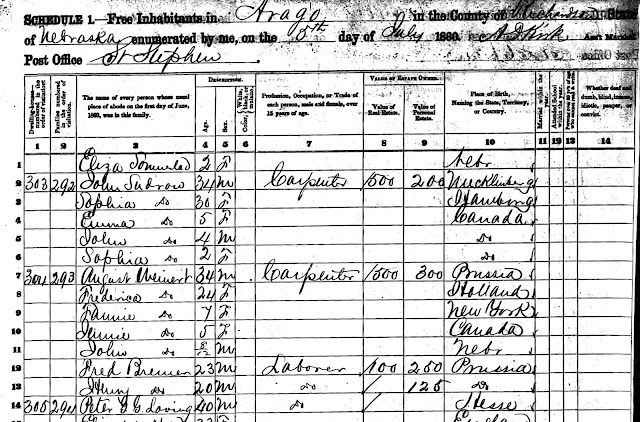 SCHEDULE 1.—Free Inhabitants in Arago in the County of Richardson State
of Nebraska enumerated by me, on the 5th day of July 1860.
Post Office St Stephen
DESCRIPTION. VALUE OF ESTATE OWNED.
Dwelling-houses— numbered in the order of visitation. Families numbered in the order of visitation. The name of every person whose usual place of abode on the first day of June, 1860, was in this family. Age. Sex. Color Profession, Occupation, or Trade of each person, male and female, over 15 years of age. Value of Real Estate. Value of Personal Estate. Place of Birth, Naming the State, Territory, or Country. Married within the Attended School Whether deaf and dumb, blind, insane, idiotic, pauper, or convict.
1 2 3 4 5 6 7 8 9 10 11 12 13 14
1 Eliza 2 F Nebr
2 303 292 John Sudrow 34 M Carpenter 1500 200 Mecklinberg
3 Sophia Do 30 F Hamburg
4 Emma Do 5 F Canada
5 John Do 4 M Do
6 Sophia Do 2 F Do
7 304 293 August Meinert 34 M Carpenter 1500 300 Prussia
8 Frederica Do 24 F Holland
9 Fannie Do 7 F New York
10 Jennie Do 5 F Canada
11 John Do 8/12 M Nebr
12 Fred Bremer 23 M Laborer 100 250 Prussia
13 Henry Do 20 M Do / 125 Do
14 305 294 Peter G G Loving 40 M Do / Hesse